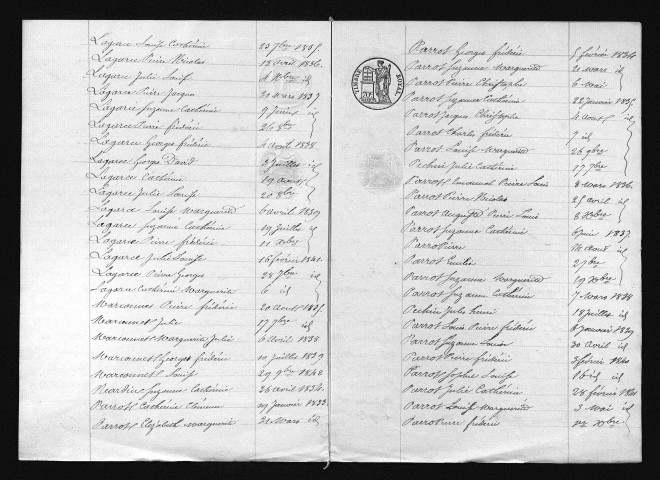 Lagarce Louise Catherine 23 7bre 1835.
Lagarce Pierre Nicolas 13 avril 1836.
Lagarce Julie Louise 4 Xbre id
Lagarce Pierre Jacques 20 mars 1837
Lagarce Suzanne Catherine 9 Juin id
Lagarce Pierre frédéric 26 8bre
Lagarce Georges frédéric 4 avril 1838
Lagarce George David 3 Juillet id
Lagarce Catherine 19 aout
Lagarce Julie Louise 20 8bre
Lagarce Louise Marguerite 6 avril 1839
Lagarce Suzanne Catherine 19 Juillet id
Lagarce Pierre frédéric 11 Xbre
Lagarce Julie Louise 16 février 1841.
Lagarce Pierre Georges 28 7bre id
Lagarce Catherine Marguerite 6 id
Marconnet Pierre frédéric 20 aout 1835.
Marconnet Julie 17 9bre id
Marconnet Marguerite Julie 6 avril 1838
Marconnet Georges frédéric 10 Juillet 1839
Marconnet Louise 29 9bre 1842
Nardin Suzanne Catherine 26 avril 1834.
Parrot Catherine Clémence 29 Janvier 1833.
Parrot Elizabeth Marguerite 21 Mars id
TIMBRE ROYAL
Parrot Georges frédéric 5 février 1834
Parrot Suzanne Marguerite 21 Mars id
Parrot Pierre Christophe 6 Mai
Parrot Suzanne Catherine 22 Janvier 1835.
Parrot Jacques Christophe 4 aout id
Parrot Charles frédéric 7 id
Parrot Louise Marguerite 26 9bre
Pechin Julie Catherine 17 7bre
Parrot Emanuel Pierre Louis 3 Mars 1836.
Parrot Pierre Nicolas 25 avril id
Parrot Auguste Pierre Louis 2 Xbre
Parrot Suzanne Catherine 6 Juin 1837
Parrot Pierre aout id
Parrot Emilie 27 bre
Parrot Suzanne Marguerite 19 Xbre
Parrot Suzanne Catherine 7 Mars 1838
Pechin Jules henri 18 Juillet id
Parrot Louis Pierre frédéric 6 Janvier 1839
Parrot Suzanne Louise 30 avril id
Parrot Pierre frédéric 3 février 1840
Parrot Sophie Louise 16 id id
Parrot Julie Catherine 28 février 1841
Parrot Louise Marguerite 3 Mai id
Parrot Pierre frédéric 22 Xbre